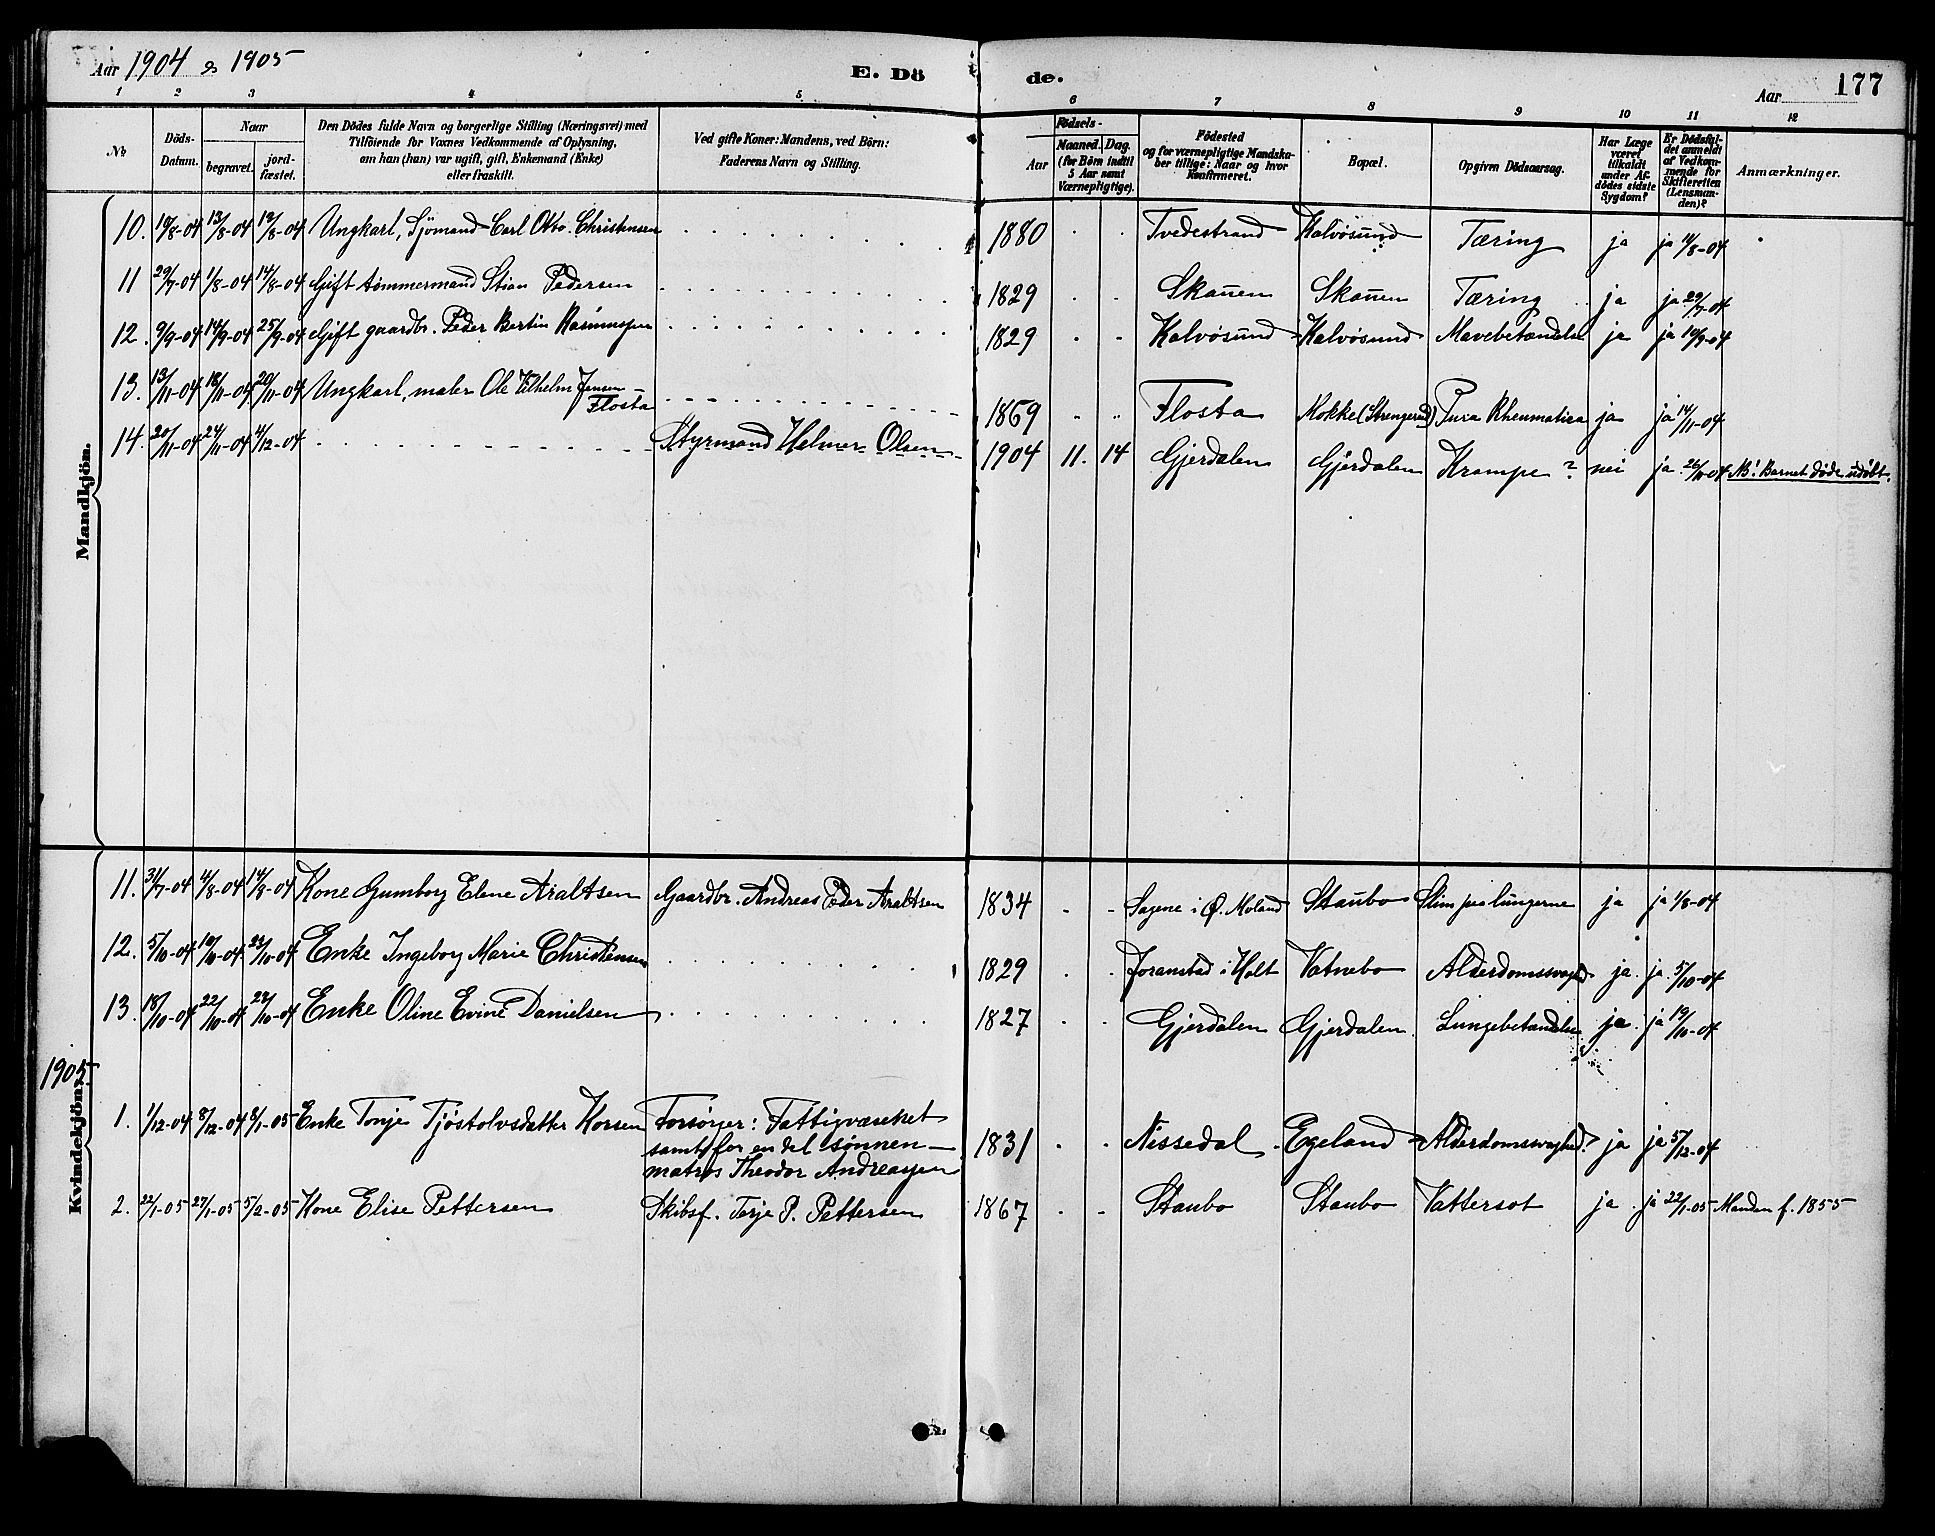 Aar 1904 & 1905
E. Dö de.
Aar 177
1 2 3 4 5 6 7 8 9 10 11 12
No
Döds-Datum.
Naar
begravet. jordfæstet.
Den Dödes fulde Navn og borgerlige Stilling (Næringsvei) med
Tilföiende for Voxnes Vedkommende af Oplysning,
om han (hun) var ugift, gift, Enkemand (Enke)
eller fraskilt.
Ved gifte Koner: Mandens, ved Börn:
Faderens Navn og Stilling.
Födsels-
Aar Maaned. Dag.
(for Börn indtil
5 Aar samt
Værnepligtige).
Födested
og for værnepligtige Mandska-
ber tillige: Naar og hvor
Konfirmeret.
Bopæl.
Opgiven Dödsaarsag.
Har Læge
været
tilkaldt
under Af-
dödes sidste
Sygdom?
Er Dödsfal-
det anmeldt
af Vedkom-
mende for
Skifteretten
(Lensman-
den)?
Anmærkninger.
Mandkjön.
10. 10/8-04 13/8-04 12/8-04 Ungkarl, Sjömand Carl Otto Christensen 1880 Tvedestrand Kalvösund Tæring ja ja 11/8-04
11 29/7-04 1/8-04 14/8-04 Gift tömmermand Stian Pedersen 1829 Skauen Skauen Tæring ja ja 29/7-04
12. 9/9-04 14/9-04 25/9-04 Gift gaardbr. Peder Bertin Rasmussen 1829 Kalvösund Kalvösund Mavebetændelse ja ja 10/9-04
13. 13/11-04 18/11-04 20/11-04 Ungkarl, maler Ole Vilhelm Jensen -
Flosta 1869 Flosta Kokke (Strengereid) Rheumatica ja ja 14/11-04
14. 20/11-04 24/11-04 4/12-04 Styrmand Helmer Olsen 1904 11. 14 Gjerdalen Gjerdalen Krampe? nei ja 26/11-04 NB! Barnet döde udöbt.
Kvindekjön.
11. 31/7-04 4/8-04 14/8-04 Kone Gumborg Elene Araltsen Gaardbr. Andreas Peder Araltsen 1834 Sagene i Ø. Moland Staubo Slim paa lungerne ja ja 1/8-04
12. 5/10-04 10/10-04 23/10-04 Enke Ingeborg Marie Christensen 1829 Joranstad i Holt Vatnebo Alderdomssvaghed ja ja 5/10-04
13. 18/10-04 22/10-04 23/10-04 Enke Oline Evine Danielsen 1827 Gjerdalen Gjerdalen. Lungebetændelse ja ja 19/10-04
1905.
1. 1/12-04 8/12-04 8/1-05 Enke Tonje Tjöstolvsdatter Korsen Forsörger: Fattigvæsenet
samt for en del sönnen
matros Theodor Andreassen 1831 Nissedal Egeland Alderdomssvaghed? ja ja 5/12-04
2. 22/1-05 27/1-05 5/2-05 Kone Elise Pettersen Skibsf. Terje P. Pettersen 1867 Staubo Staubo Vattersot ja ja 22/1-05 Manden f. 1855